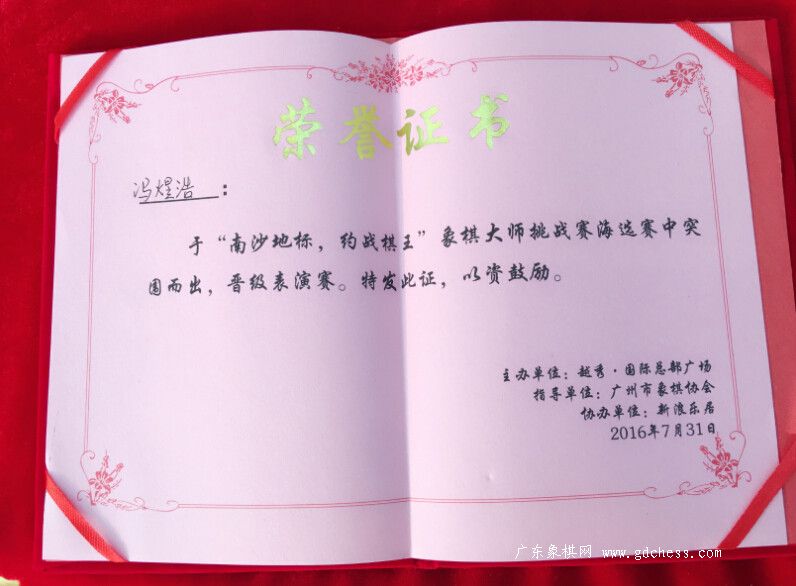 荣誉证书
冯煋浩：
于“南沙地标，约战棋王”象棋大师挑战赛海选赛中突
围而出，晋级表演赛。特发此证，以资鼓励。
主办单位：越秀·国际总部广场
指导单位：广州市象棋协会
协办单位：新浪乐居
2016年7月31日
广东象棋网 www.gdchess.com